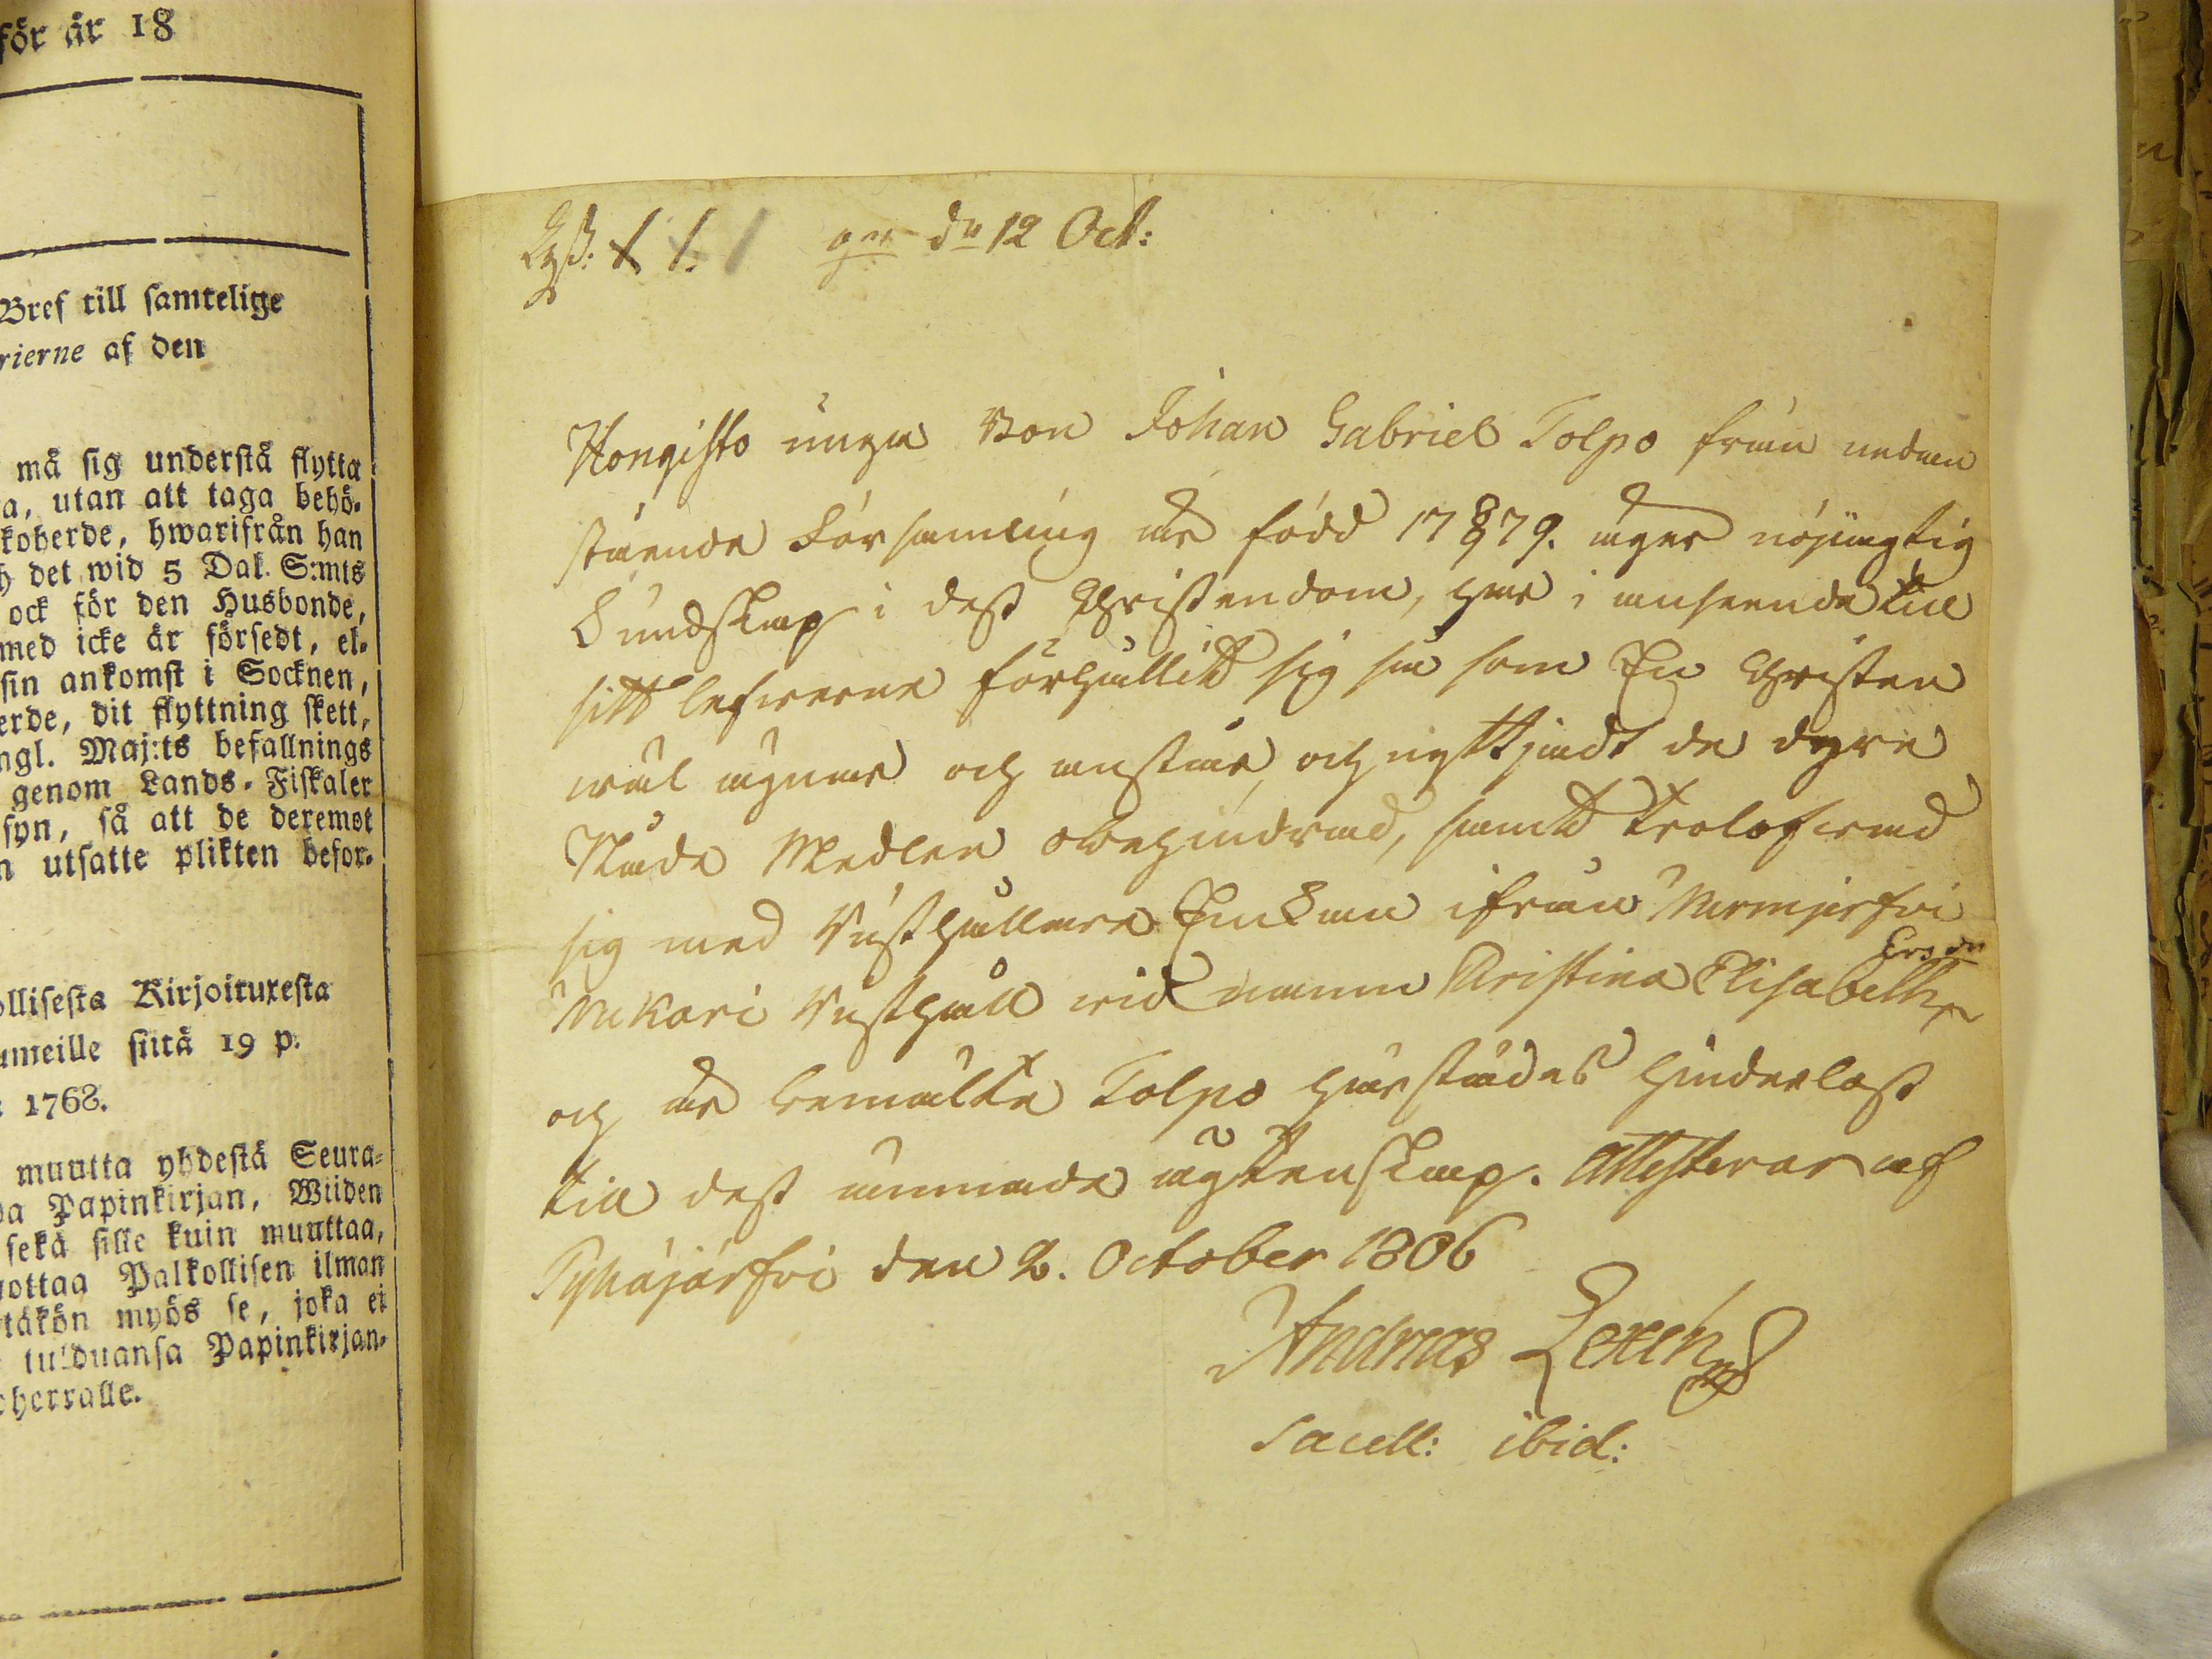 för år 18
Bref till samtelige
rierne af den
må sig understå flytta
a, utan att taga behö-
koherde, hwarifrån han
h det wid 5 Dal. S:mts
ock för den Husbonde,
med icke är försedt, el-
sin ankomst i Socknen,
erde, dit flyttning skett,
ngl. Maj:ts befallnings
genom Lands-Fiskaler
syn, så att de deremot
n utsatte plikten befor-
ollisesta Kirjoituxesta
ameille siitä 19 p.
1768.
muutta yhdestä Seura-
oa Papinkirjan, Wiiden
sekä sille kuin muuttaa,
uottaa Palkollisen ilman
täkön myös se, joka ei
tulduansa Papinkirjan-
oherralle.
Lyst: 1. 1. 1 gen d. 12 Oct:
Hongisto unga Son Johan Gabriel Tolpo från nedan
stående Församling är född 1779. äger nöjagtig
Kundskap i dess Christendom, har i anseende till
sitt lefwerne förhållit sig så som En Christen
wäl ägnar och anstår, och nyttjadt de dyre
Nåde Medlen obehindrad, samt trolofwad
sig med Rusthållare Enkan ifrån
Mckari Rusthåll wid namn Christina Elisabeth Ers dr
och är bemälte Tolpo härstädes hinderlös
till dess ämnade ägtenskap. Attesterar af
Pyhäjärfvi den 2. October 1806
Andreas Zexeh
Sacell: ibid: